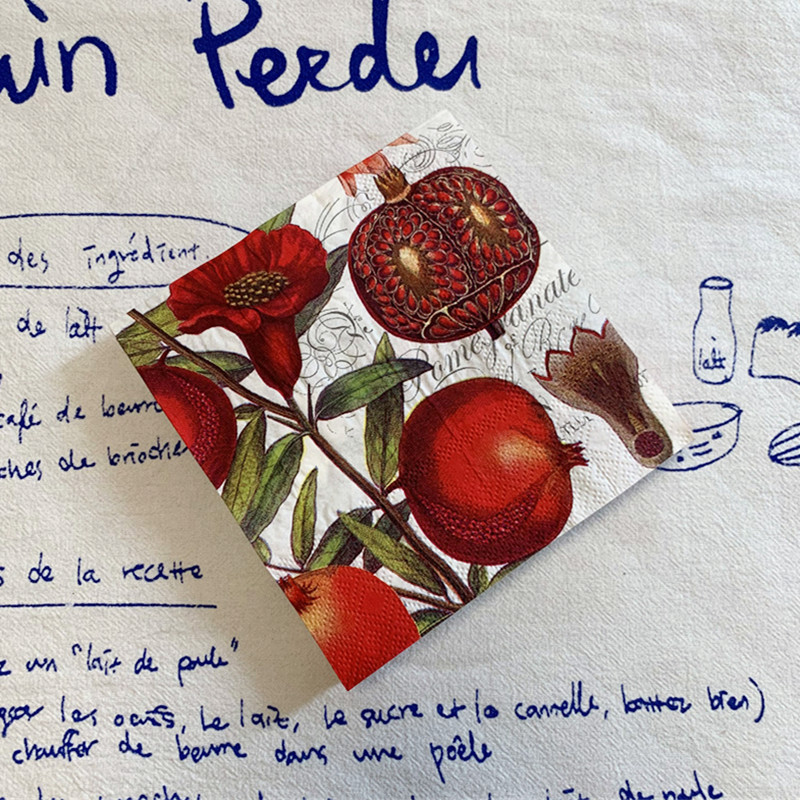 ain Perdu
des ingrédient.
de lait
café de beurre
ches de brioche
Pomegranate
lait
s de la recette
un "lait de poule"
les oeufs, le lait, le sucre et la cannelle, battez bien)
chauffer de beurre dans une poêle
de poule